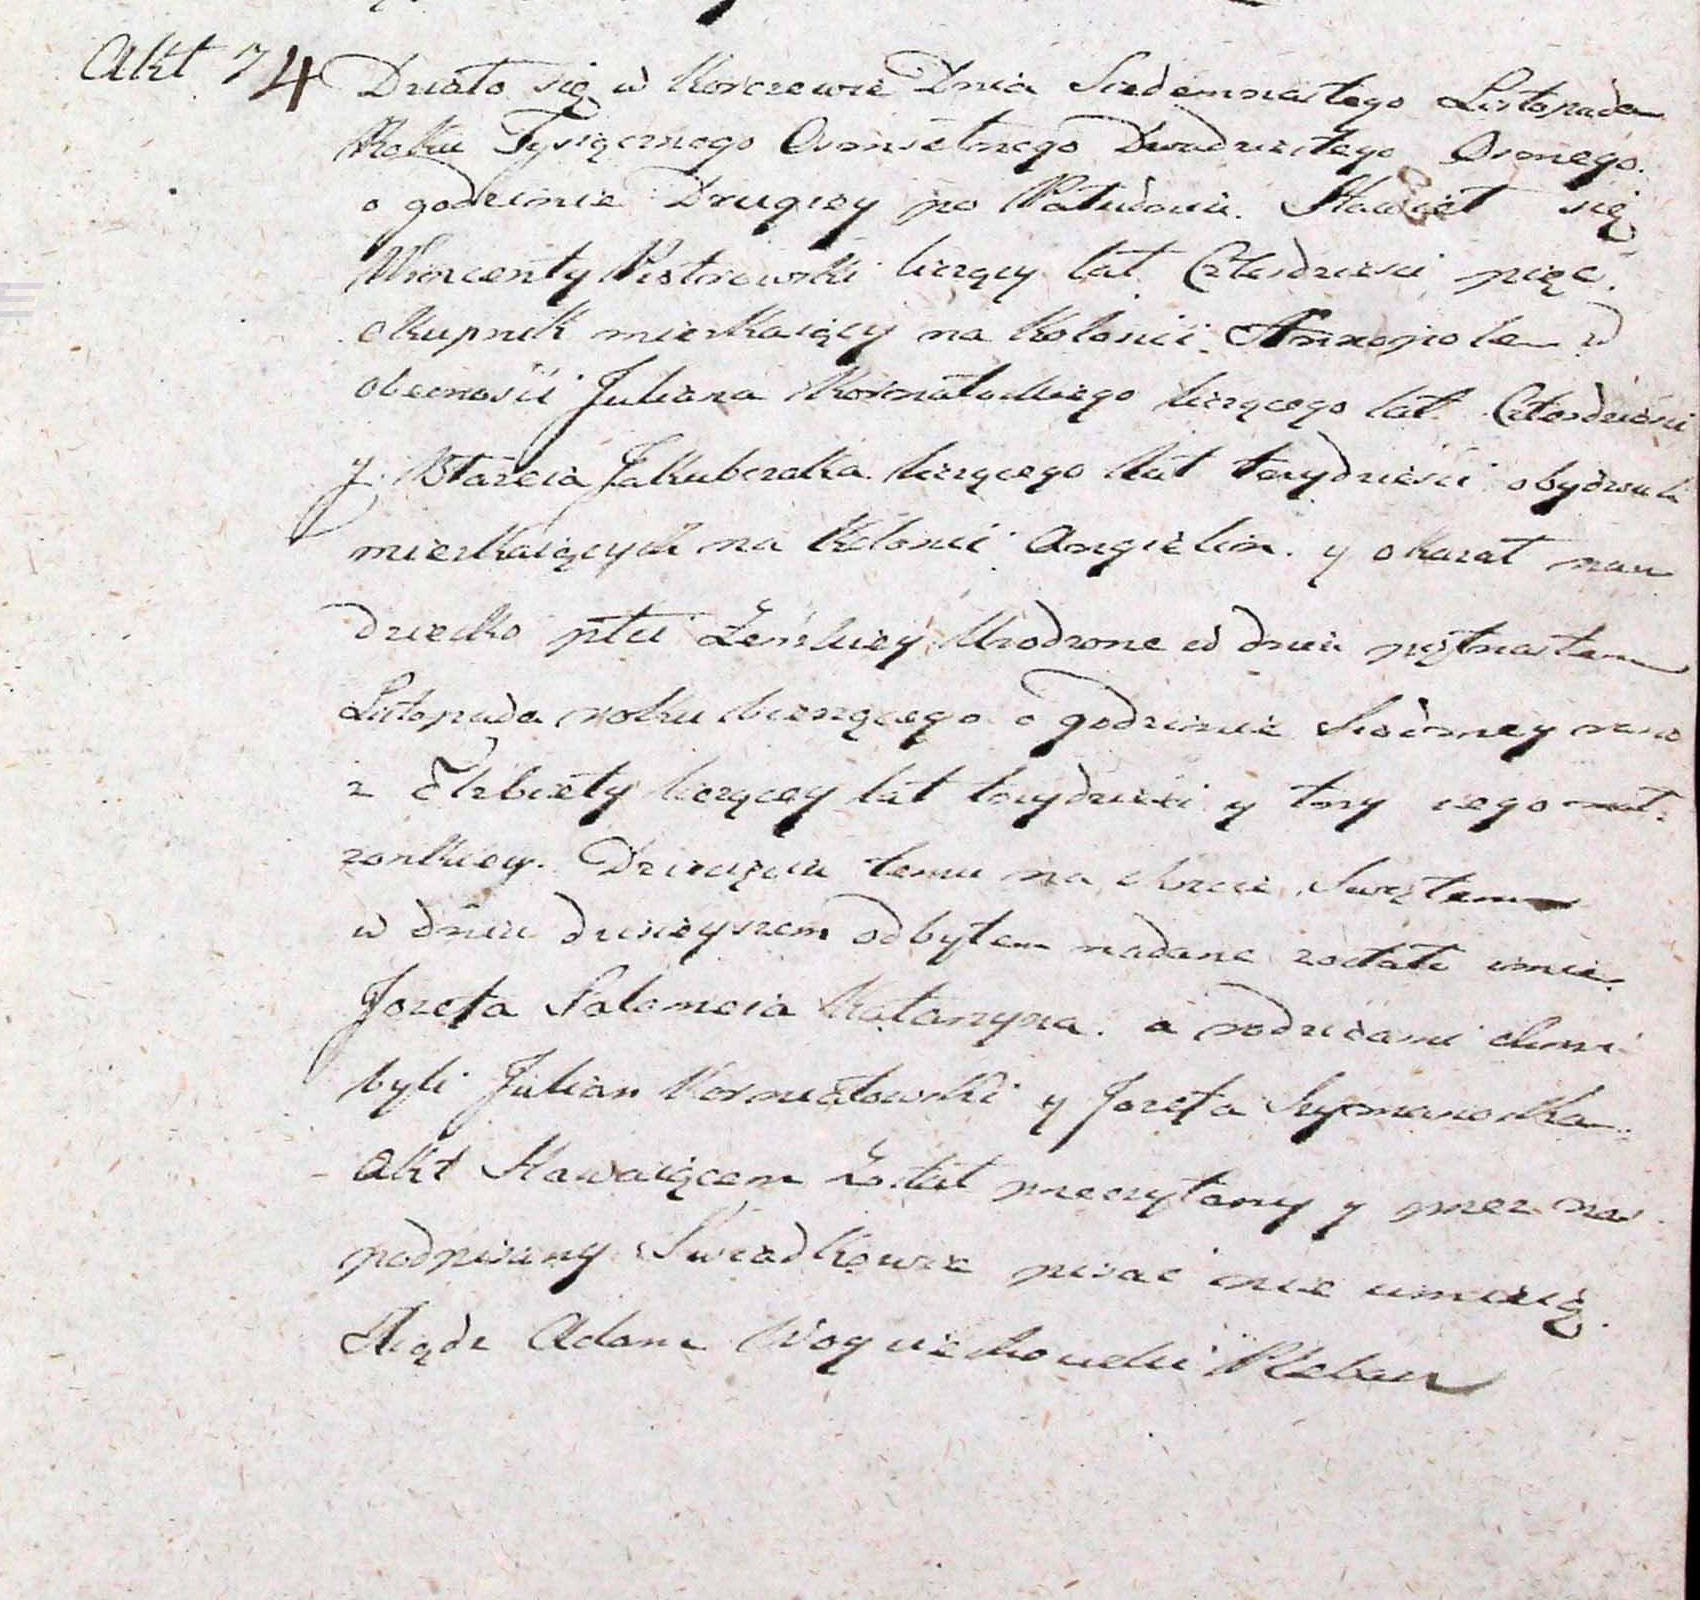 Akt 74 Działo się w Korczewie Dnia Siedemnastego Listopada
Roku Tysiącznego Osmsetnego Dwudziestego Osmego.
o godzinie Drugiey po Południu. Stawiet się
Wincenty Piotrowski liczący lat Czterdziesci pięc.
okupnik mieszkaiący na Kolonii Annopole w
obecnosci Juliana liczącego lat Czterdziesci
y Błażeia Jakubczaka liczącego lat trzydziesci obydwuch
mieszkaiących na Kolonii Angielin. y okazał nam
dziecko płci Żeńskiey Urodzone w dniu piętnastem
Listopada roku bierzącego o godzinie Siodmey rano
z Elzbiety liczącey lat trzydziesci y trzy iego mał:
zonkiey. Dziecięciu temu na chrzcie Swiętem
w dniu dzisieyszem odbytem nadane zostało imie
Jozefa Salomeia Katarzyna. a rodzicami chrzes:
byli Julian Kormatowski y Jozefa Szymanoska
Akt Stawaiącem Został przeczytany y przez nas
podpisany Swiadkowie pisac nie umieią.
Xiądz Adam Woyciechowski Pleban